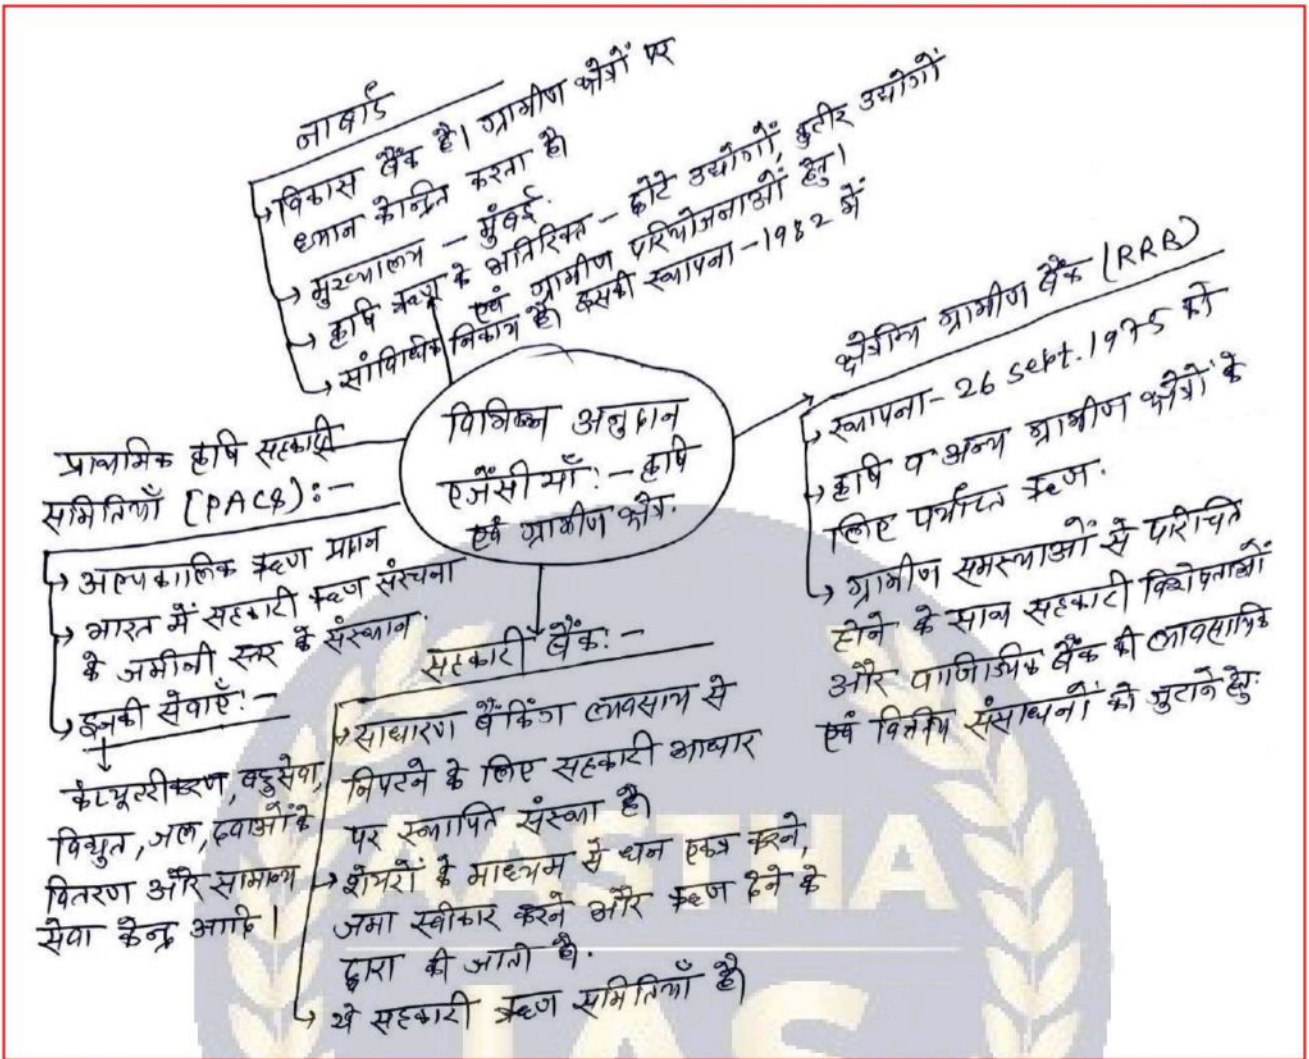 नाबार्ड
विकास बैंक है। ग्रामीण क्षेत्रों पर
ध्यान केन्द्रित करता है।
मुख्यालय – मुंबई.
कृषि ऋण के अतिरिक्त – छोटे उद्योगों, कुटीर उद्योगों
एवं ग्रामीण परियोजनाओं हेतु।
सांविधिक निकाय है। इसकी स्थापना – 1982 में
विभिन्न अनुदान
एजेंसीयाँ:- कृषि
एवं ग्रामीण क्षेत्र.
क्षेत्रीय ग्रामीण बैंक (RRB)
स्थापना- 26 sept. 1975 को
कृषि व अन्य ग्रामीण क्षेत्रों के
लिए पर्याप्त ऋण.
ग्रामीण समस्याओं से परिचित
होने के साथ सहकारी विशेषताओं
और वाणिज्यिक बैंक की व्यावसायिक
एवं वित्तीय संसाधनों को जुटाने हेतु.
प्राथमिक कृषि सहकारी
समितियाँ (PACS):-
अल्पकालिक ऋण प्रदान
भारत में सहकारी ऋण संरचना
के जमीनी स्तर के संस्थान.
इनकी सेवाएँ:-
कंप्यूटरीकरण, बहुसेवा,
विद्युत, जल, दवाओं के
वितरण और सामान्य
सेवा केन्द्र आदि।
सहकारी बैंक:-
साधारण बैंकिंग व्यवसाय से
निपटने के लिए सहकारी आधार
पर स्थापित संस्था है।
शेयरों के माध्यम से धन एकत्र करने,
जमा स्वीकार करने और ऋण देने के
द्वारा की जाती है.
ये सहकारी ऋण समितियाँ है।
AASTHA
IAS